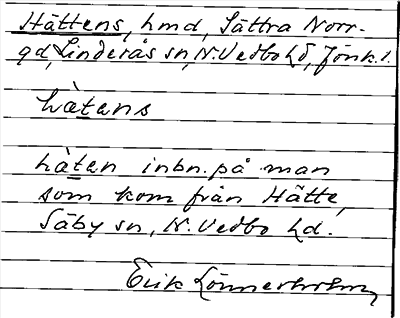 Hättens, hmd, Sättra Norr-
gd, Linderås sn, N. Vedbo hd, Jönk. l.
hätens
häten inbn. på man
som kom från Hätte,
Säby sn, N. Vedbo hd.
Erik Lönnerholm